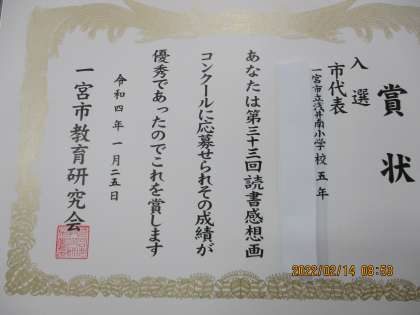 賞状
入選
市代表
一宮市立浅井南小学校五年
あなたは第三十三回読書感想画
コンクールに応募せられその成績が
優秀であったのでこれを賞します
令和四年一月二五日
一宮市教育研究会
2022/02/14 08:58